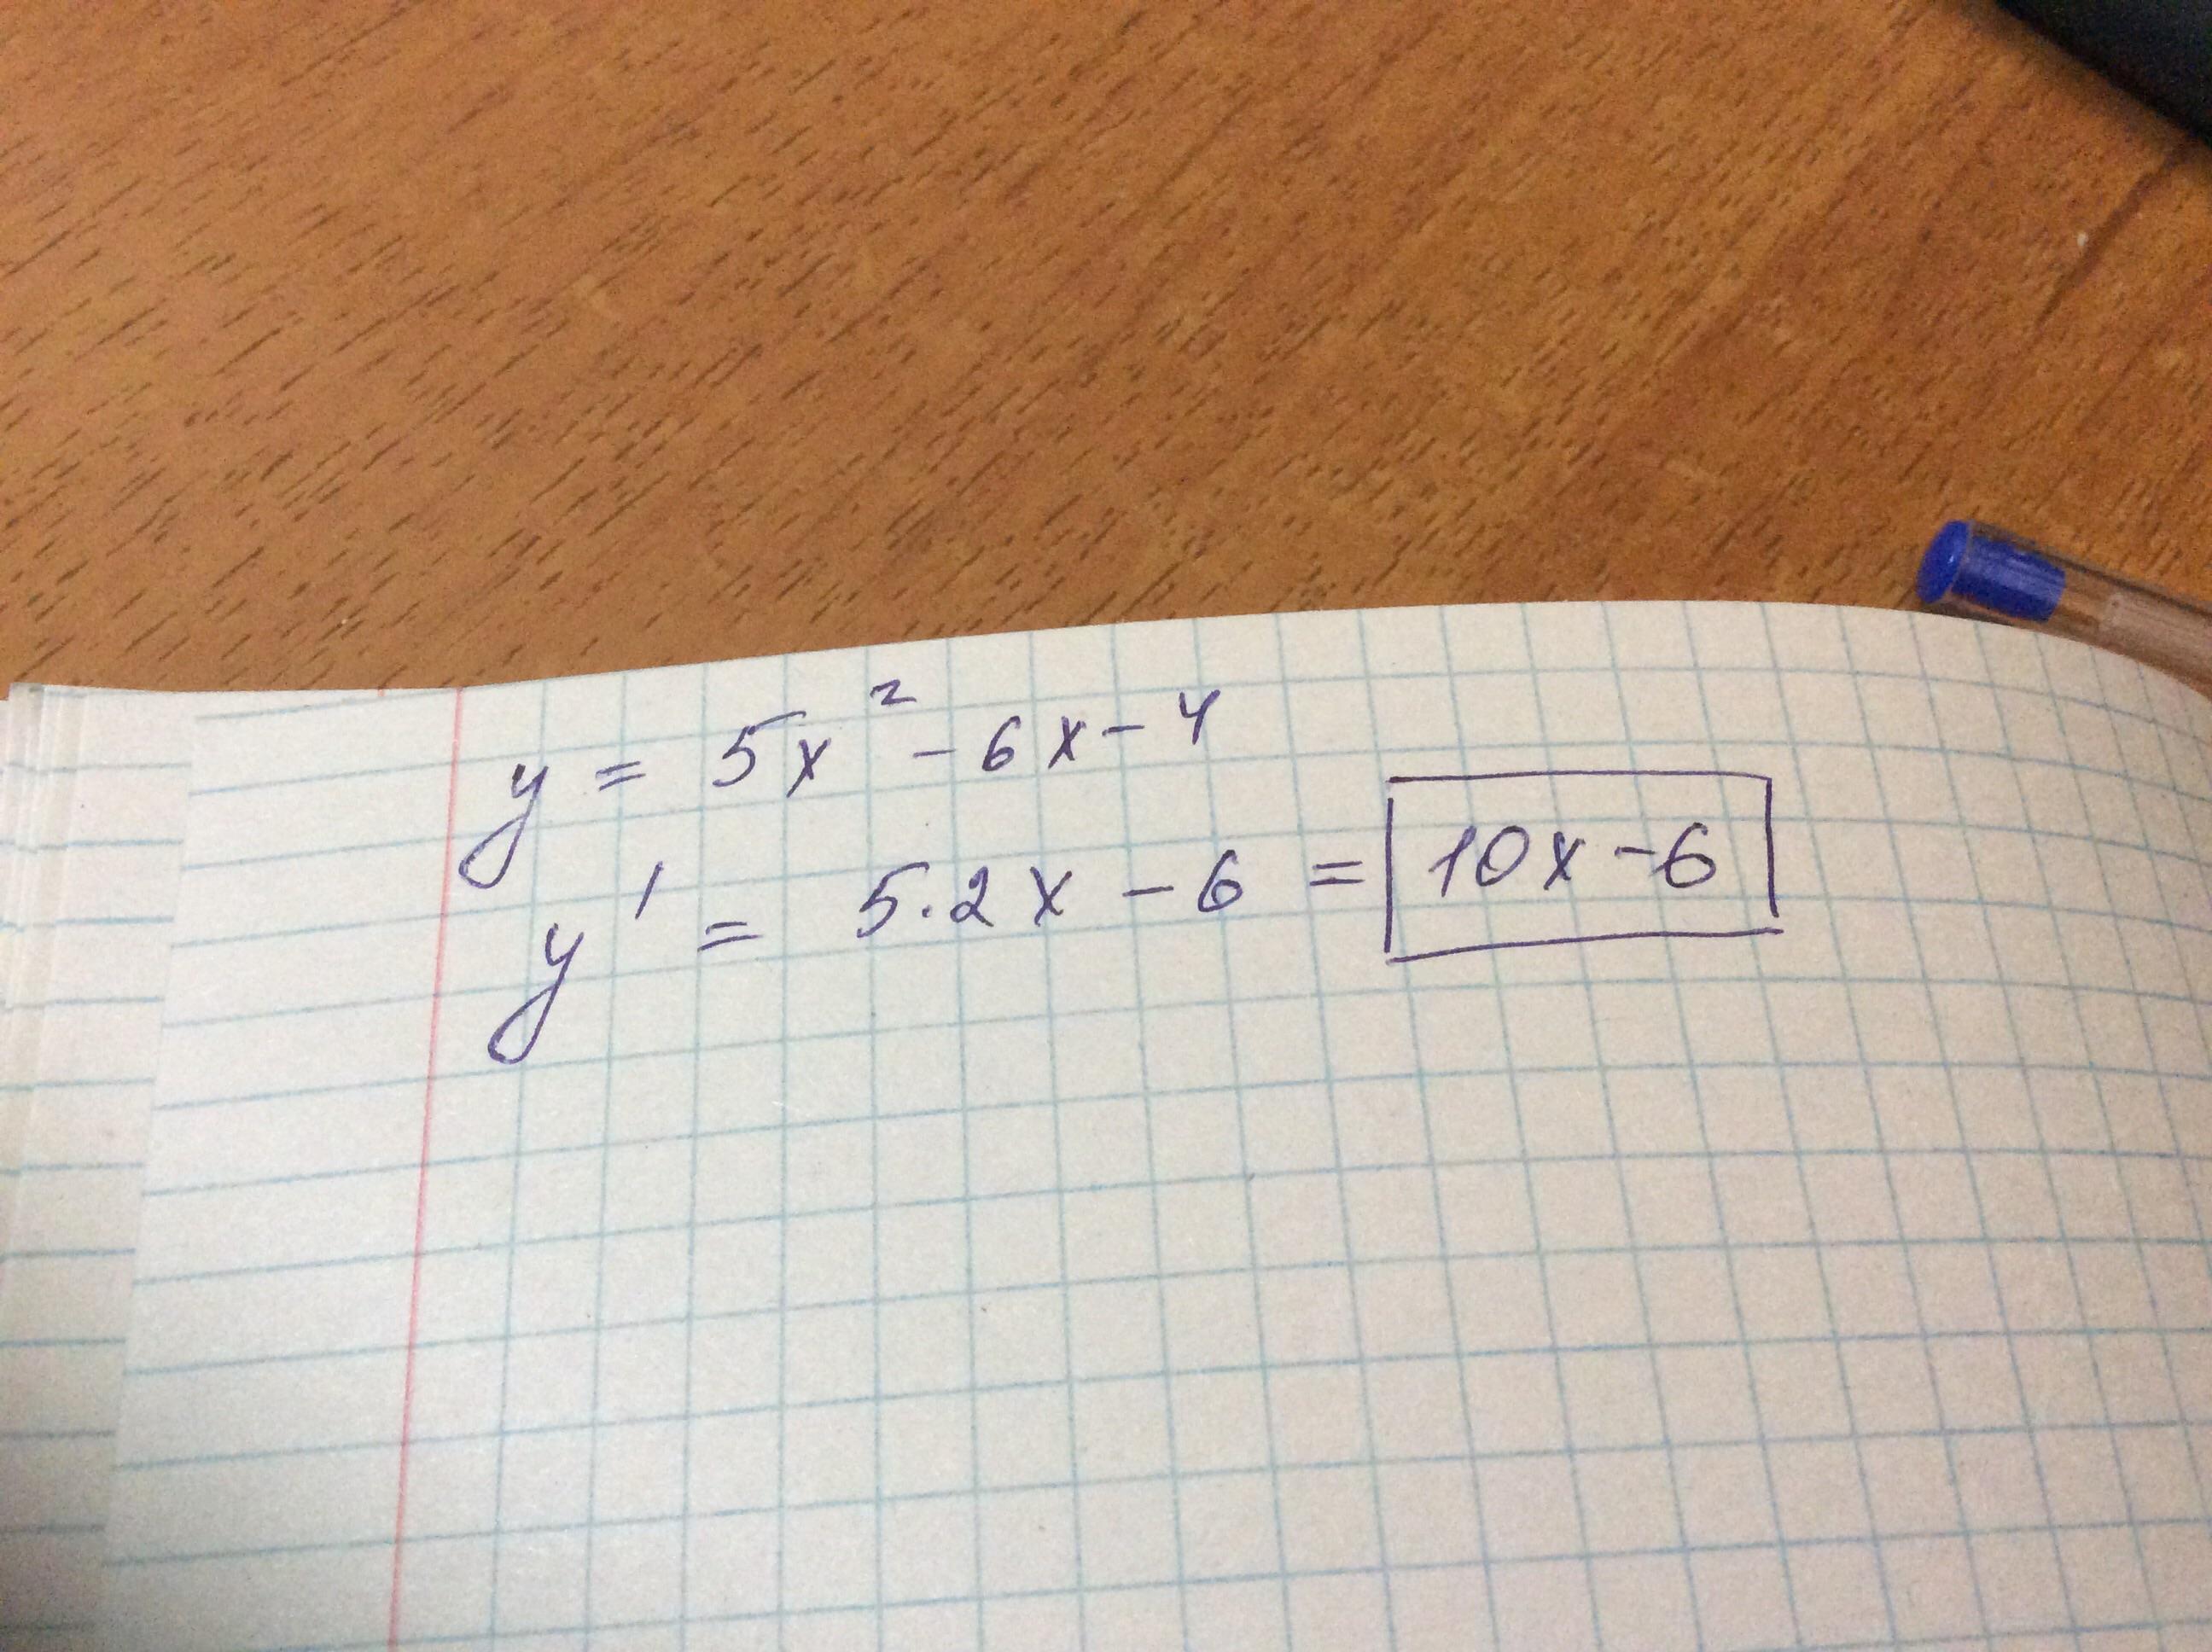 y = 5x² - 6x - 4
y' = 5.2x - 6 = 10x - 6